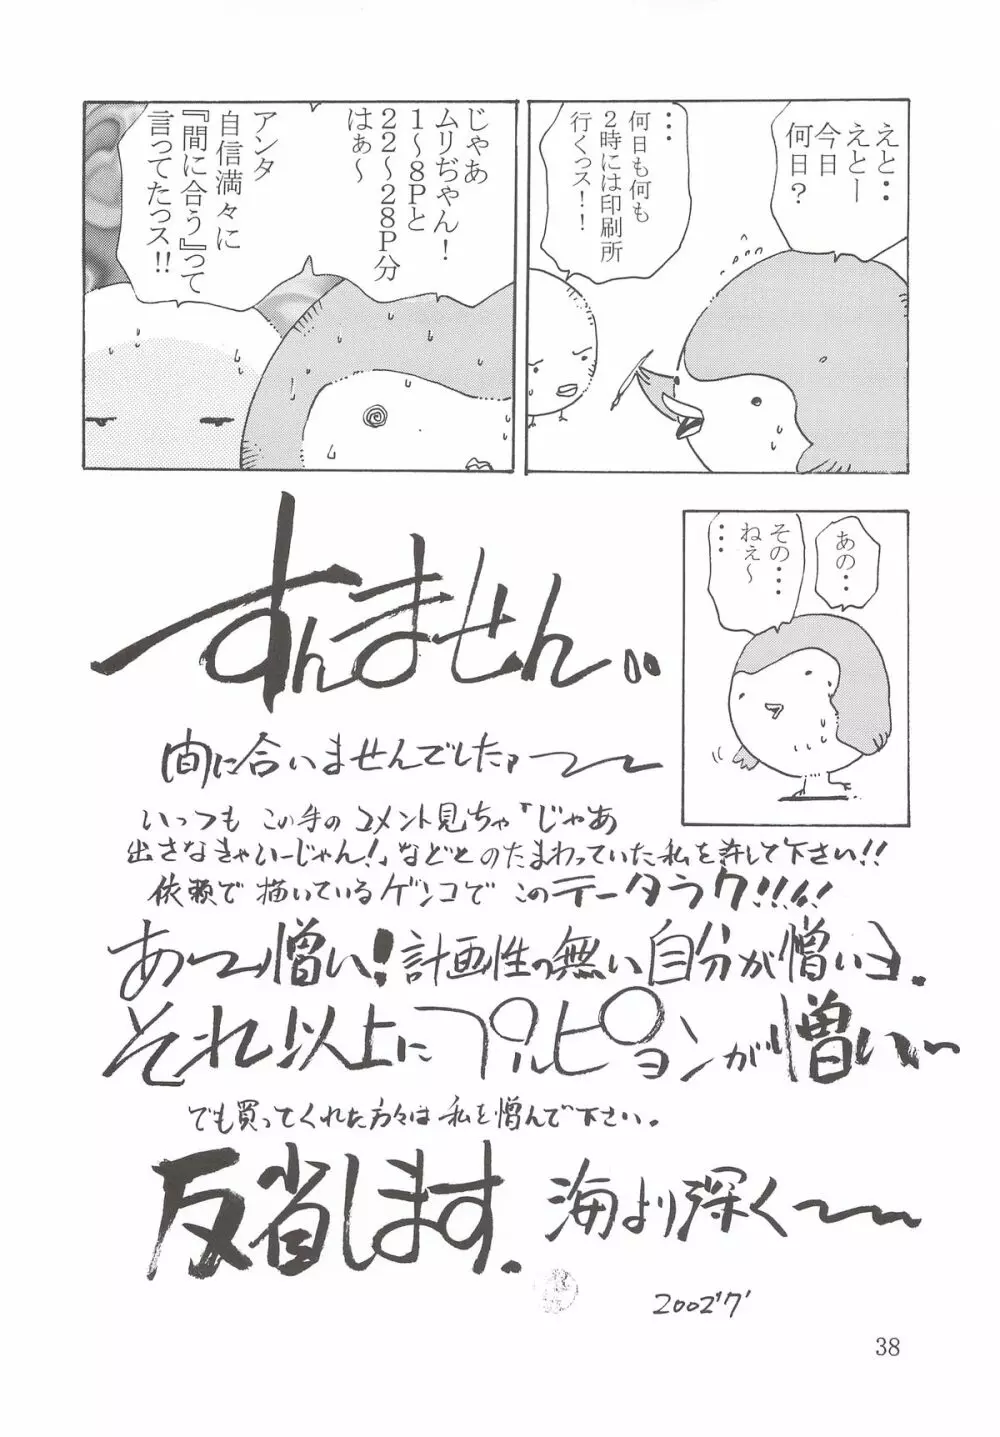 えと・・
えとー
今日
何日？
・・・
何日も何も
２時には印刷所
行くっス！！
じゃあ
ムリぢゃん！
１〜８Pと
２２〜２８P分
はぁ〜
アンタ
自信満々に
『間に合う』って
言ってたっス!!
あの・・
その・・・
ねぇ〜
・・・
すんません、、
間に合いませんでした〜
いつも この手の コメント見ちゃ「じゃあ
出さなきゃいーじゃん！」などとのたまわっていた私を許して下さい!!
依頼で描いているゲンコでこのテータラク!!!!
あ〜憎い！計画性の無い自分が憎いヨ.
それ以上にプルピョンが憎い〜
でも買ってくれた方々は私を憎んで下さい。
反省します. 海より深く〜
2002'7'
38